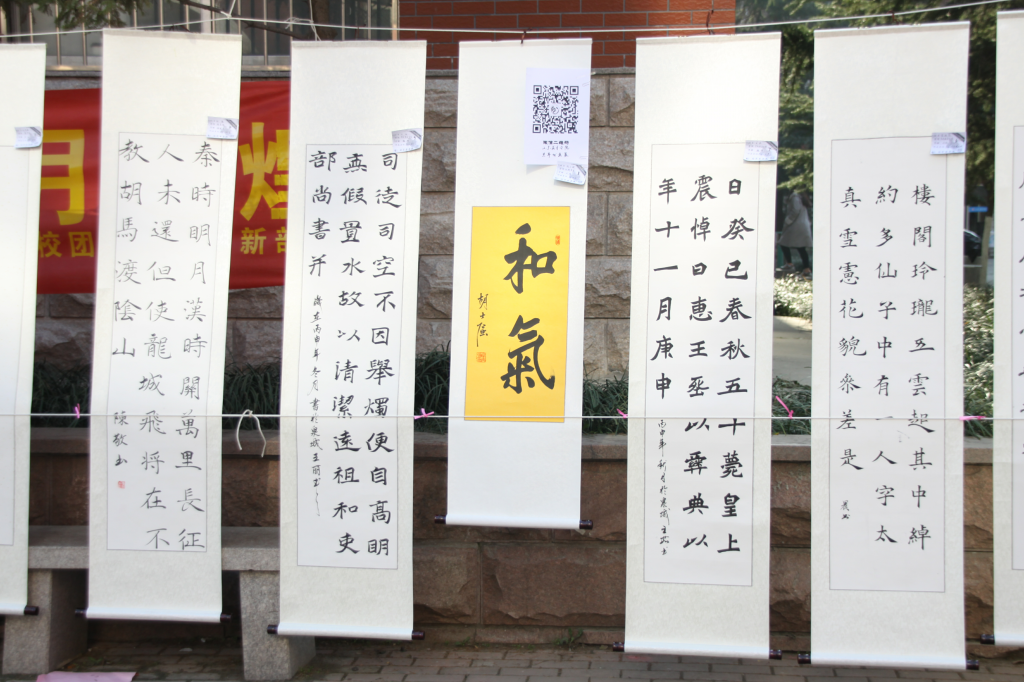 月
校团
煌
新部
秦時明月漢時關萬里長征
人未還但使龍城飛将在不
教胡馬渡陰山
陳敬書
司徒司空不因舉燭便自高明
無假置水故以清潔遠祖和吏
部尚書并
歲在丙申年冬月書於
和氣
日癸已春秋五十薨皇上
震悼曰惠王丞以彛典以
年十一月庚申
樓閣玲瓏五雲起其中綽
約多仙子中有一人字太
真雪膚花貌參差是